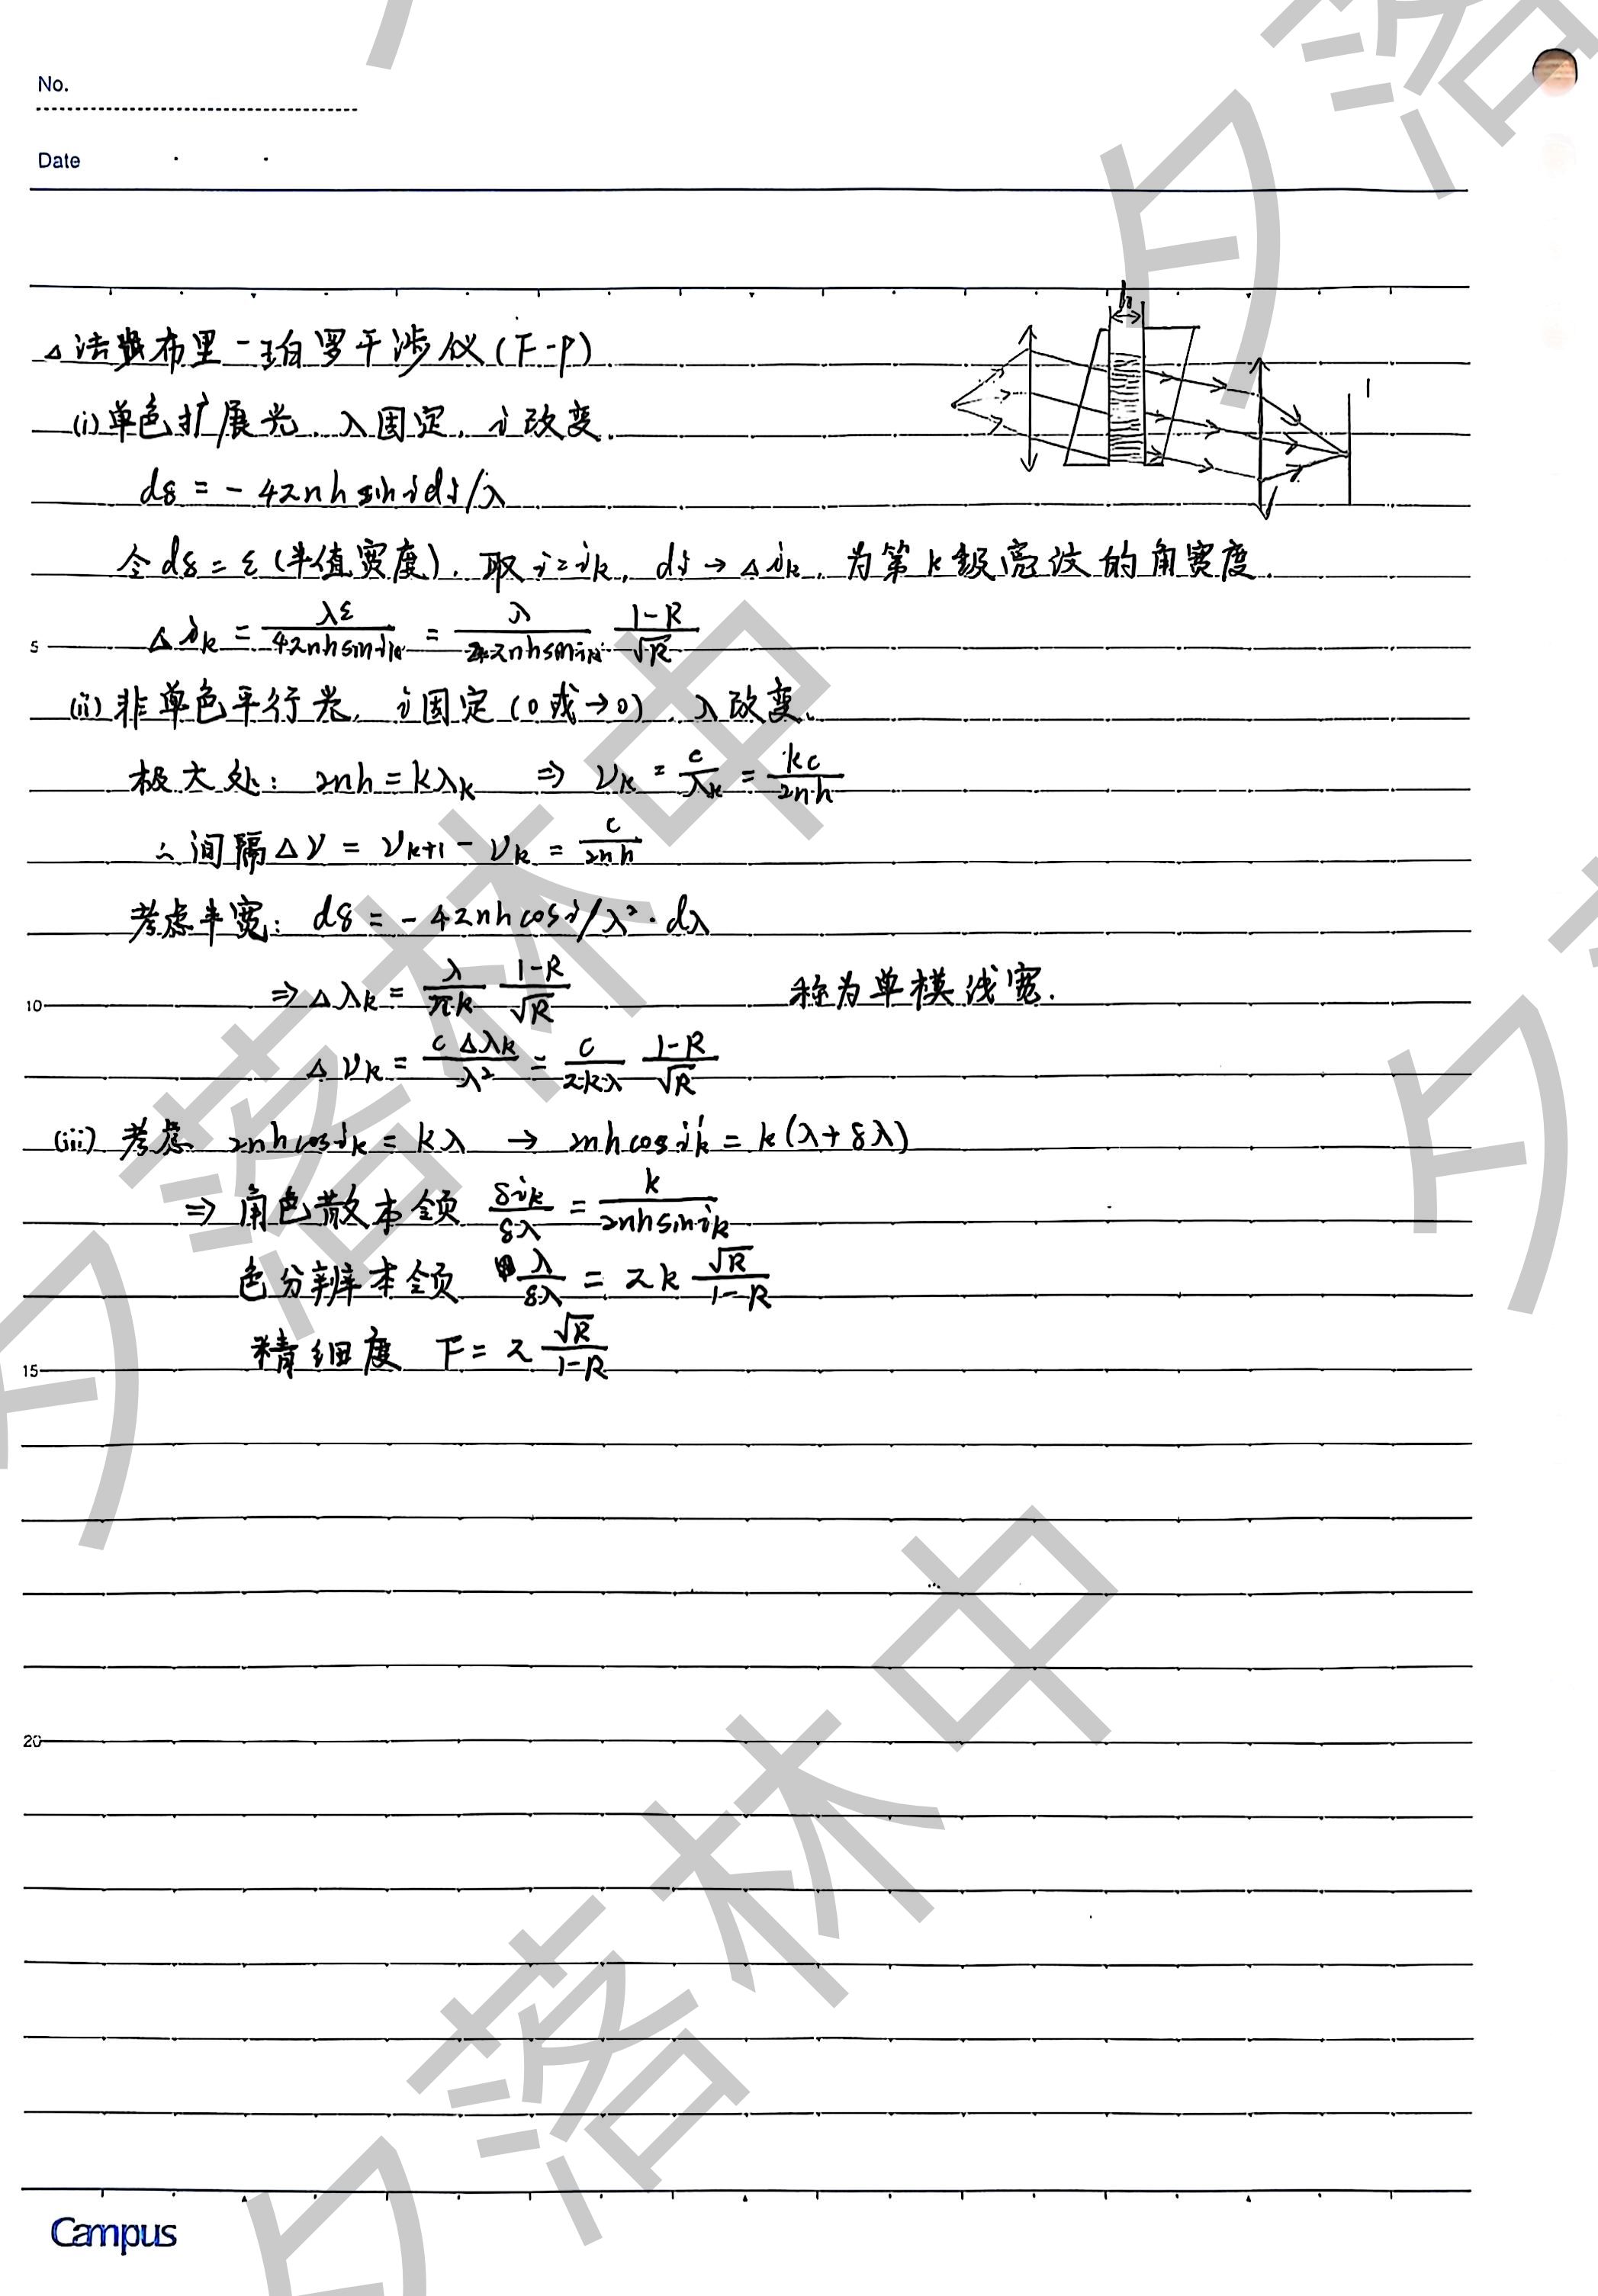 No.
Date
△法布里-珀罗干涉仪(F-P)
(i)单色扩展光,λ固定,i改变.
dδ = -4πnh sin i di/λ
令dδ=ε(半值宽度).取i=i_k, di→Δi_k,为第k级亮纹的角宽度.
5 Δi_k = λε/(4πnh sin i_k) = λ/(2πnh sin i_k) (1-R)/√R
(ii)非单色平行光, i固定(0或→0),λ改变.
极大处: 2nh=kλ_k ⇒ ν_k = c/λ_k = kc/2nh
∴间隔Δν = ν_{k+1} - ν_k = c/2nh
考虑半宽: dδ = -4πnh cos i/λ²·dλ
10 ⇒Δλ_k = λ/(πk) (1-R)/√R 称为单模线宽.
Δν_k = cΔλ_k/λ² = c/(πkλ) (1-R)/√R
(iii) 考虑 2nh cos i_k = kλ → 2nh cos i_k' = k(λ+δλ)
⇒ 角色散本领 δi_k/δλ = k/(2nh sin i_k)
色分辨本领 λ/δλ = πk √R/(1-R)
15 精细度 F = π √R/(1-R)
20
Campus
夕落林中
夕落林中